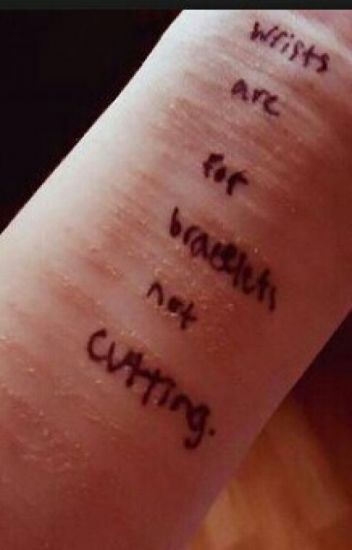 wrists
are
for
bracelets
not
cutting.